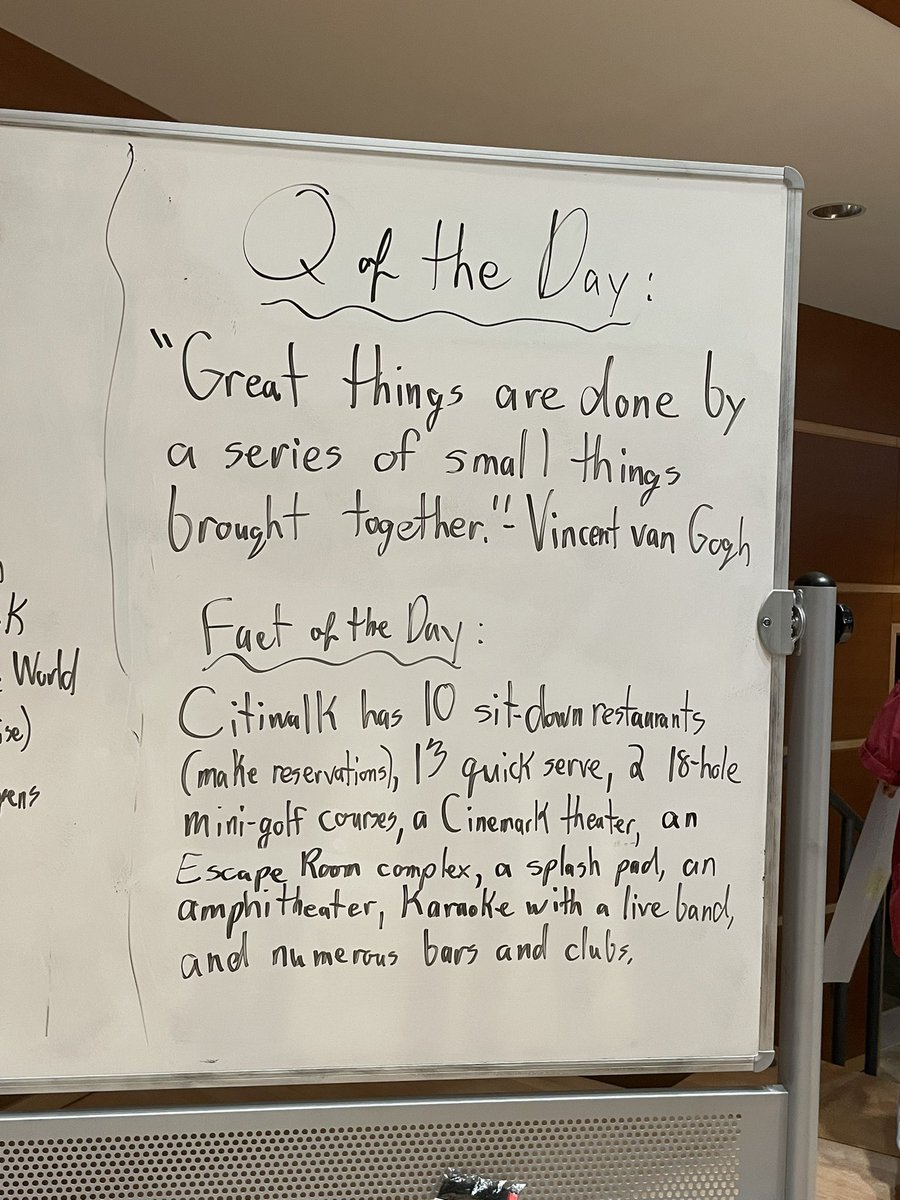 Q of the Day:
"Great things are done by
a series of small things
brought together."- Vincent van Gogh
Fact of the Day:
Citiwalk has 10 sit-down restaurants
(make reservations), 13 quick serve, 2 18-hole
mini-golf courses, a Cinemark theater, an
Escape Room complex, a splash pad, an
amphitheater, Karaoke with a live band,
and numerous bars and clubs.
World